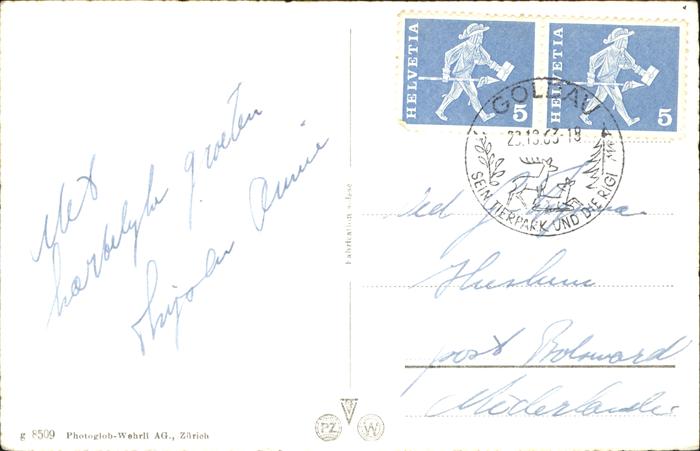 HELVETIA 5
HELVETIA 5
GOLDAU
SEIN TIERPARK UND DIE RIGI
Met
hartelyke groeten
Thijs en Annie
Fabrication suisse
post Bolsward
Nederland
g 8509 Photoglob-Wehrli AG., Zürich
PZ W